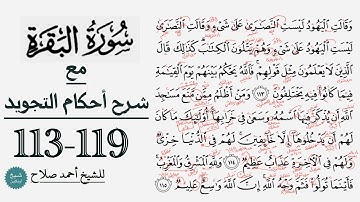 سُورَةُ البَقَرَةِ
مع
شرح أحكام التجويد
113-119
للشيخ أحمد صلاح
وَقَالَتِ ٱلْيَهُودُ لَيْسَتِ ٱلنَّصَٰرَىٰ عَلَىٰ شَىْءٍ وَقَالَتِ ٱلنَّصَٰرَىٰ
لَيْسَتِ ٱلْيَهُودُ عَلَىٰ شَىْءٍ وَهُمْ يَتْلُونَ ٱلْكِتَٰبَ كَذَٰلِكَ قَالَ
ٱلَّذِينَ لَا يَعْلَمُونَ مِثْلَ قَوْلِهِمْ فَٱللَّهُ يَحْكُمُ بَيْنَهُمْ يَوْمَ ٱلْقِيَٰمَةِ
فِيمَا كَانُوا۟ فِيهِ يَخْتَلِفُونَ ١١٣ وَمَنْ أَظْلَمُ مِمَّن مَّنَعَ مَسَٰجِدَ
ٱللَّهِ أَن يُذْكَرَ فِيهَا ٱسْمُهُۥ وَسَعَىٰ فِى خَرَابِهَآ أُو۟لَٰٓئِكَ مَا كَانَ
لَهُمْ أَن يَدْخُلُوهَآ إِلَّا خَآئِفِينَ لَهُمْ فِى ٱلدُّنْيَا خِزْىٌ
وَلَهُمْ فِى ٱلْءَاخِرَةِ عَذَابٌ عَظِيمٌ ١١٤ وَلِلَّهِ ٱلْمَشْرِقُ وَٱلْمَغْرِبُ
فَأَيْنَمَا تُوَلُّوا۟ فَثَمَّ وَجْهُ ٱللَّهِ إِنَّ ٱللَّهَ وَٰسِعٌ عَلِيمٌ ١١٥